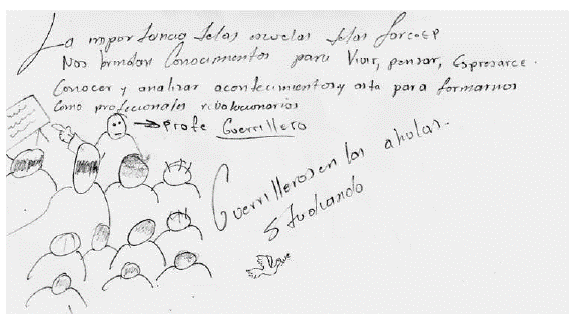 La importancia de las escuelas de las farc-EP
Nos brindan Conocimientos para Vivir, pensar, Espresarce.
Conocer y analizar acontecimientos y asta para formarnos
Como profecionales rebolucionarios
profe Guerrillero
Guerrilleros en las ahulas.
Studiando